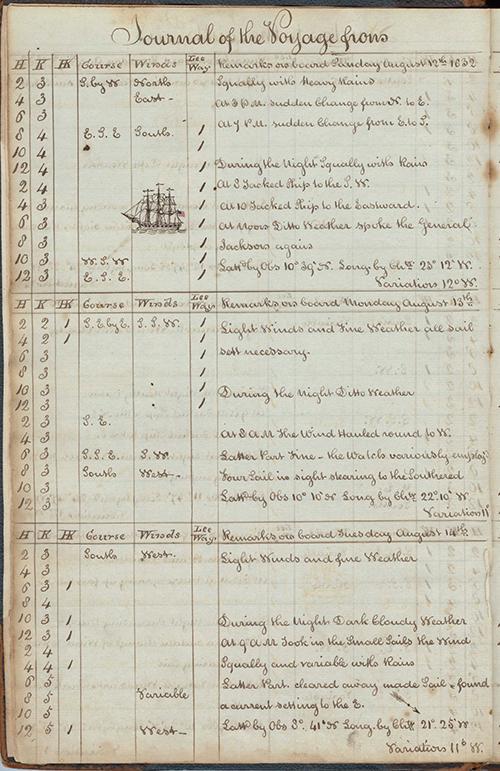 Journal of the Voyage from
H K HK Course Winds Lee Way Remarks on board Sunday August 12th 1832
2 3 S. by W North Squally with Heavy Rains
4 3 East - At 3 P.M. sudden Change from N. to E.
6 3 At 7 P.M. sudden Change from E. to S.
8 4 E. S. E South. 1
10 4 1
12 4 1 During the Night Squally with Rain
2 4 1 At 2 Tacked Ship to the S. W.
4 3 1 At 10 Tacked Ship to the Eastward.
6 3 1 At Noon Ditto Weather spoke the General
8 3 1 Jackson again
10 3 W. S. W 1 Latd by Obs 10° 39' N. Long by Chr. 23° 12' W.
12 3 E. S. E. 1 Variation 12° W.
H K HK Course Winds Lee Way Remarks on board Monday August 13th
2 2 1 S. E by E. S. S. W. 1 Light Winds and Fine Weather all sail
4 2 1 1
6 3 1 sett necessary.
8 3 1
10 3 1 During the Night Ditto Weather
12 3 1
2 3 S. E.
4 3 At 2 A M The Wind Hauled round to W.
6 3 S. S. E S. W Latter Part Fine - the Watch variously employd
8 3 South West - Four Sail in sight stearing to the Southered
10 3 Latd by Obs 10° 10' N Long by Chr. 22° 10' W
12 3 Variation 11°
H K HK Course Winds Lee Way. Remarks on board Tuesday August 14th
2 3 South West - Light Winds and fine Weather
4 3
6 3 1
8 4
10 3 1 During the Night Dark Cloudy Weather
12 3 1 At 9 A M Took in the Small Sails the Wind
2 4
4 4 1 Squally and variable with Rain
6 5 Latter Part. cleared away made Sail, found
8 5 Variable a current setting to the E.
10 5
12 5 1 West - Latd by Obs 8°. 41' N Long. by Chr 21°. 25' W
Variation 11° W.